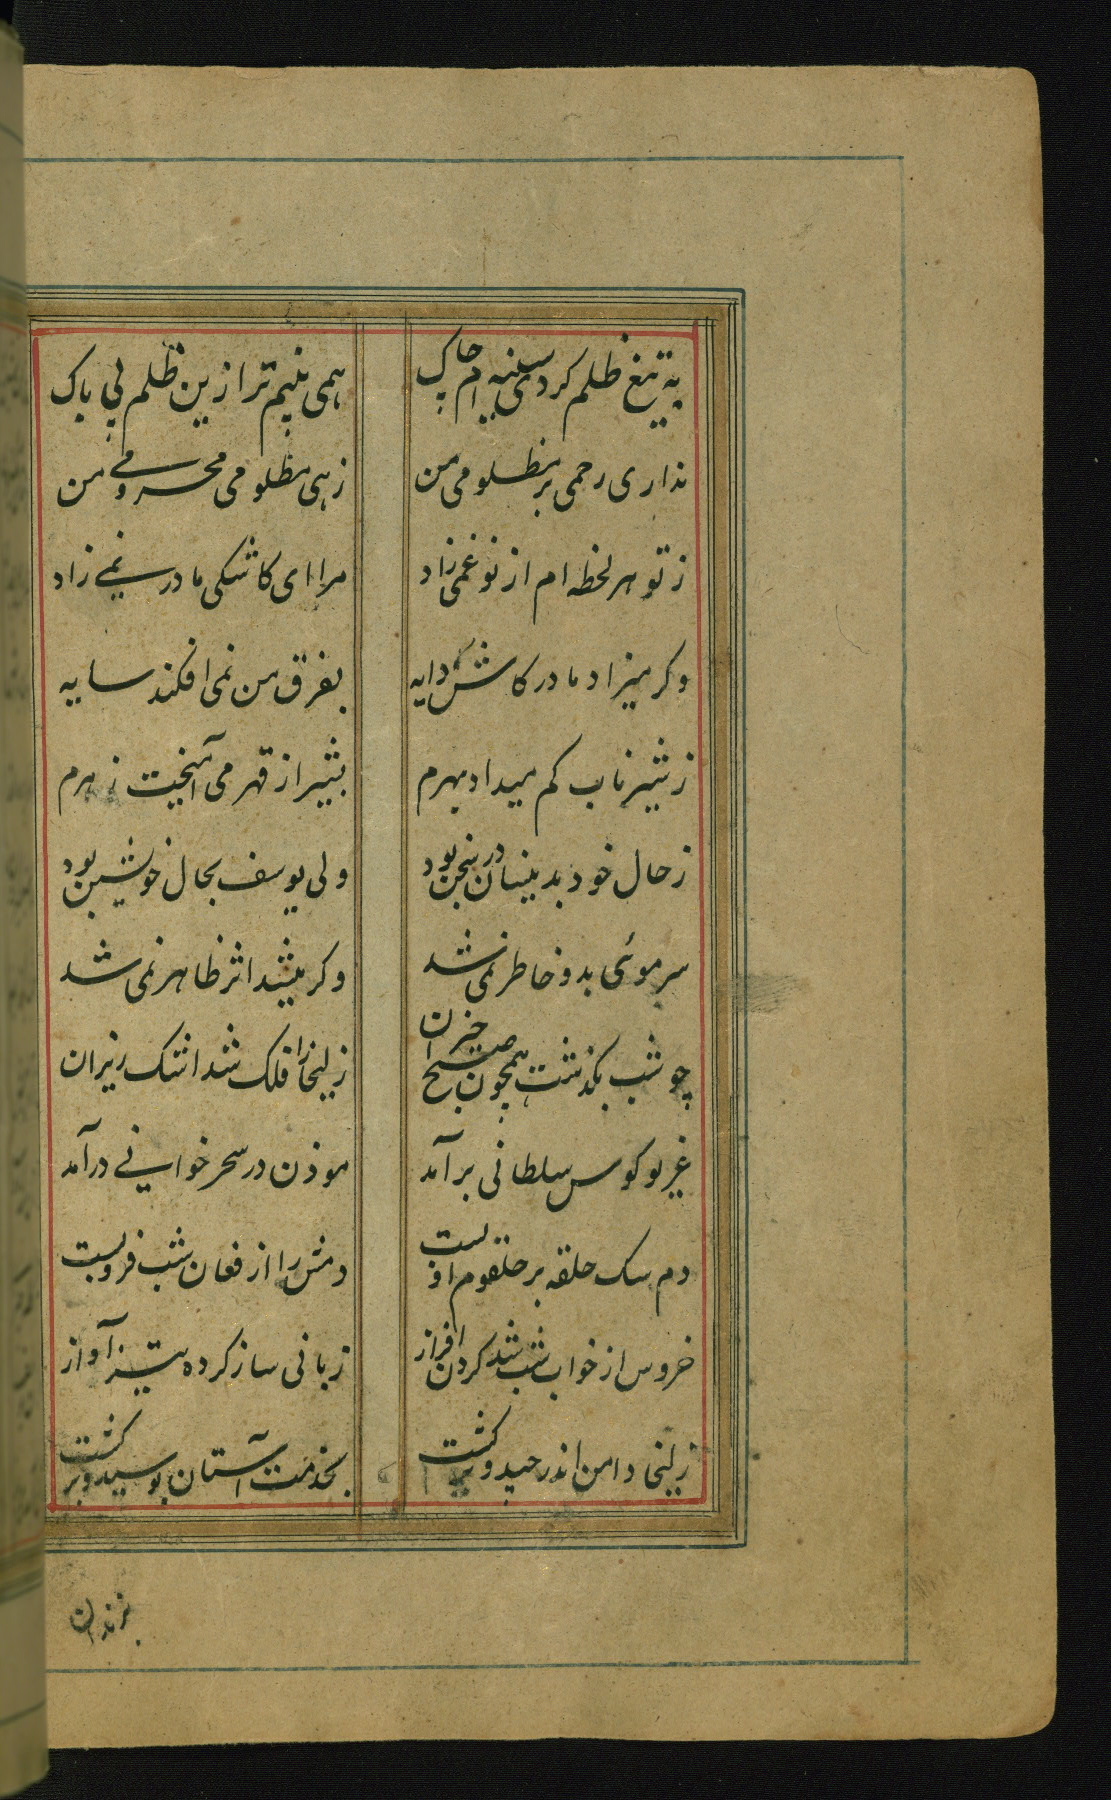 به تیغ ظلم کردی سینه ام چاک همی بینم ترا زین ظلم بی باک
نداری رحمی بر مظلومی من زهی مظلومی محرومی من
ز تو هر لحظه ام از نو غمی زاد مرا ای کاشکی مادر نمی زاد
وکر میزاد مادر کاش دایه بفرق من نمی افکند سایه
ز شیر ناب کم میداد بهرم بشیر از قهر می آمیخت زهرم
ز حال خود بدینسان در سخن بود ولی یوسف بحال خویشتن بود
سر موئی بدو خاطر نمی شد وکر میشد اثر ظاهر نمی شد
چو شب بکذشت همچون صبح خیزان زلیخا را فلک شد اشک ریزان
غریو کوس سلطانی برآمد موذن در سحر خوانی درآمد
دم سک حلقه بر حلقوم او بست دمش را از فغان شب فرو بست
خروس از خواب شب شد کردن افراز زبانی ساز کرده تیز آواز
زلیخا دامن اندر چید و برکشت بخدمت آستان بوسید و برکشت
بزندان